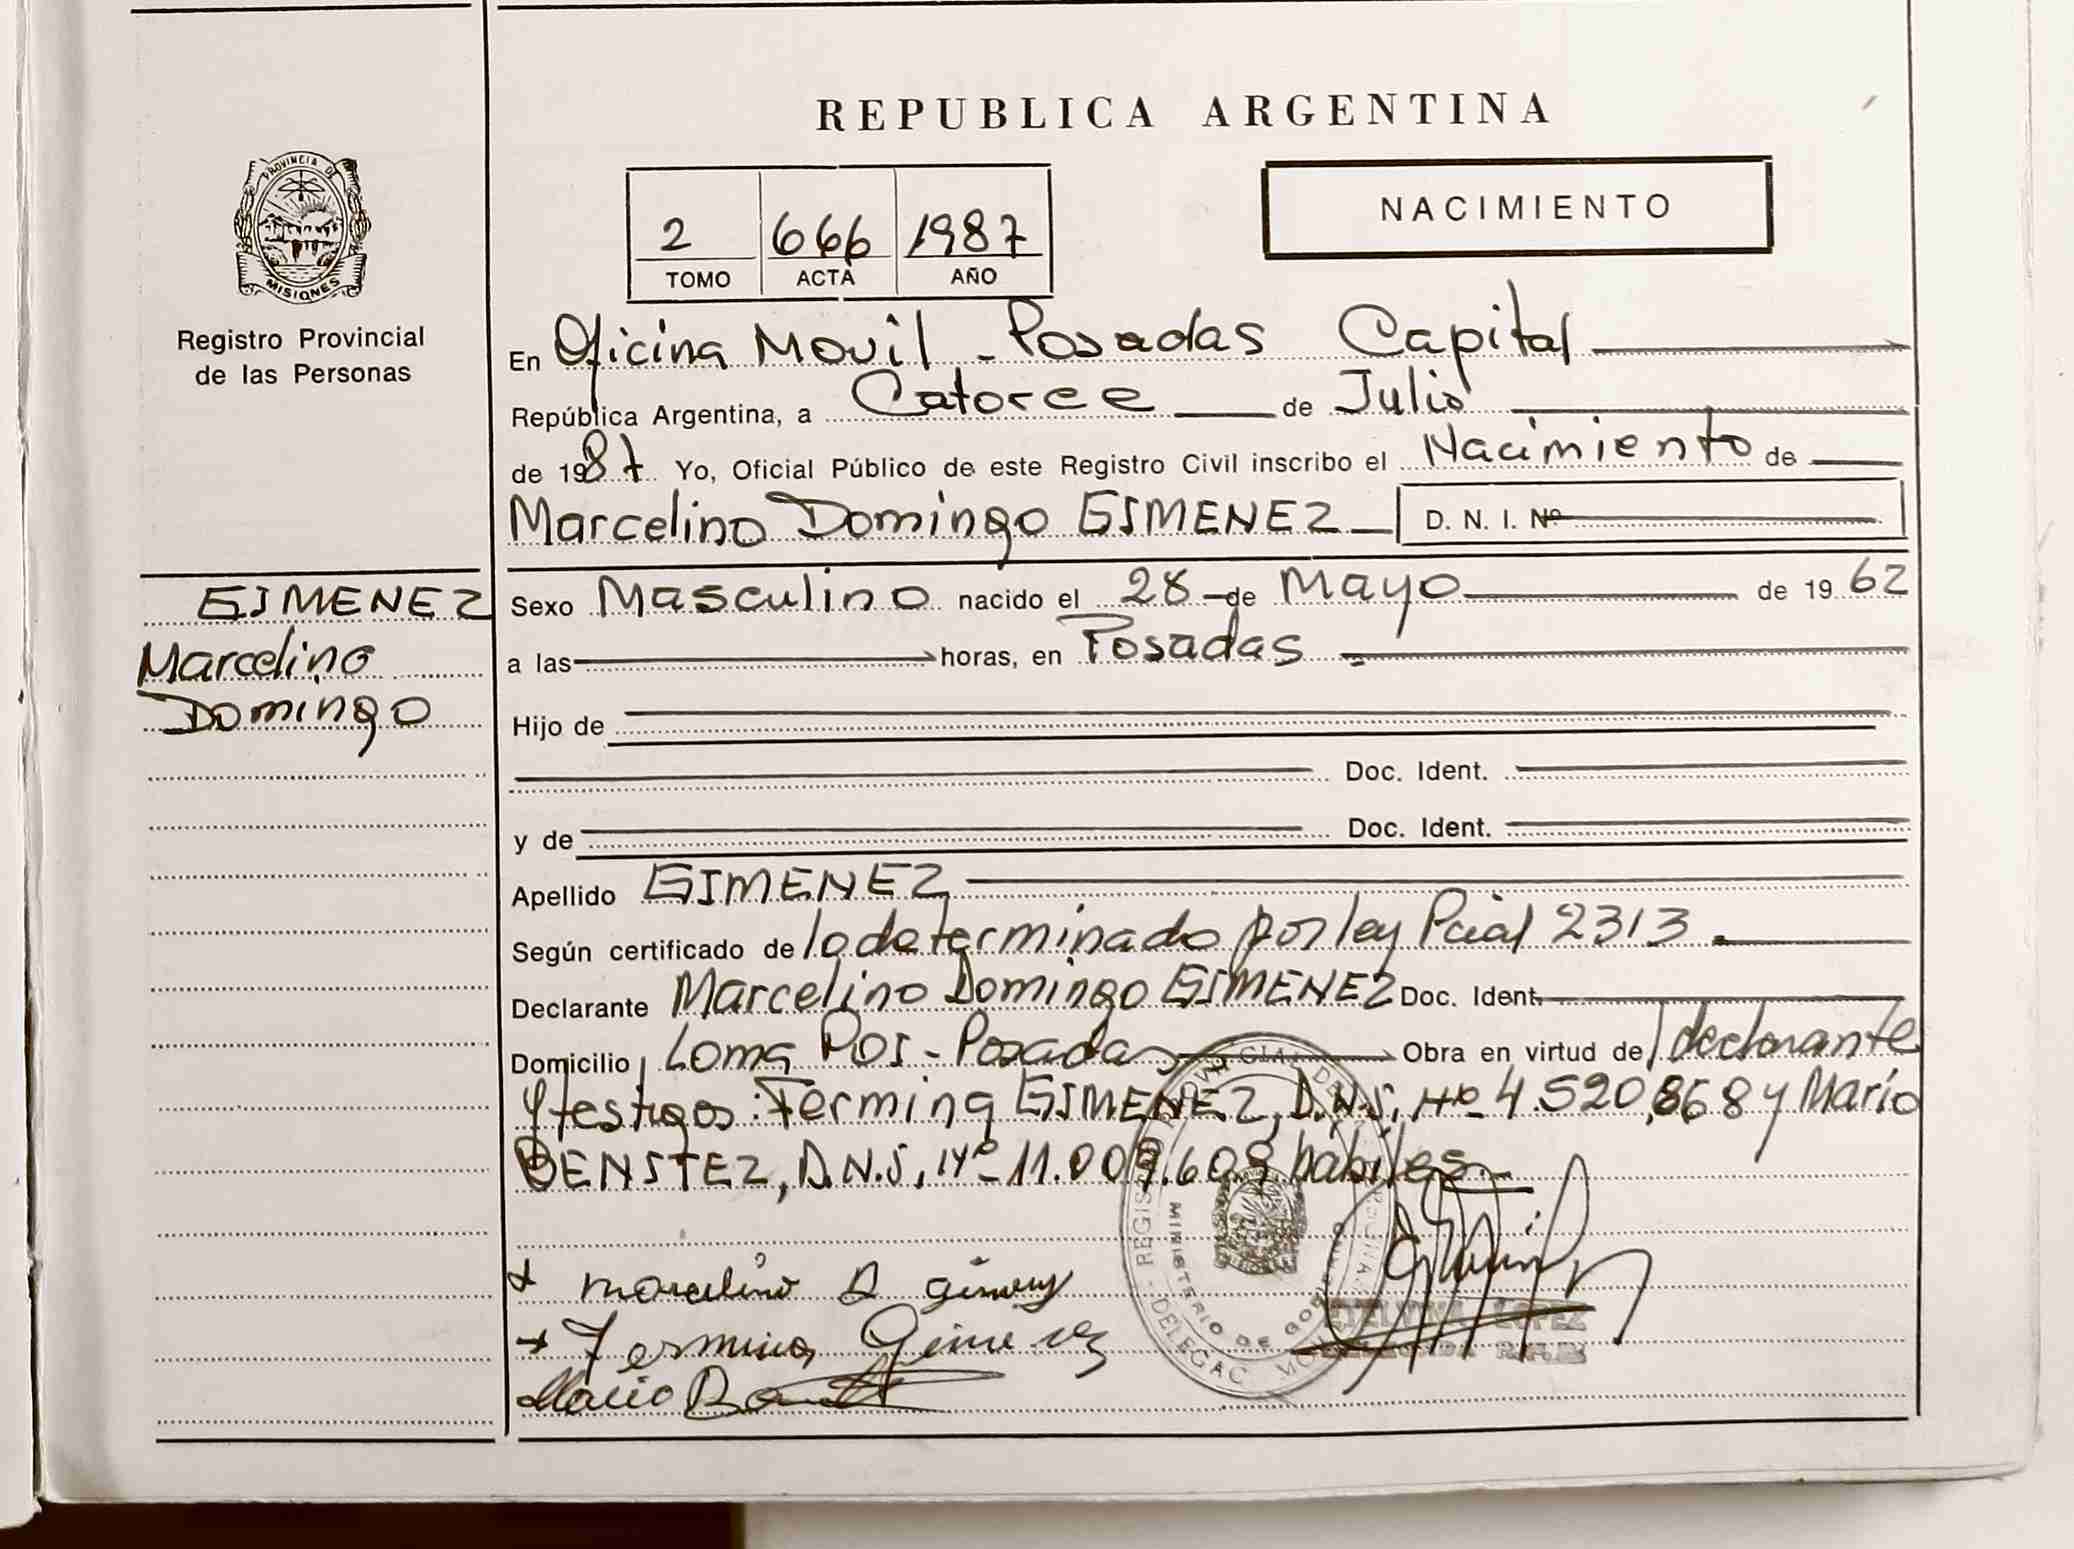 REPUBLICA ARGENTINA
PROVINCIA DE
MISIONES
Registro Provincial
de las Personas
2 666 1987
TOMO ACTA AÑO
NACIMIENTO
En Oficina Movil - Posadas Capital
República Argentina, a Catorce de Julio
de 1987 Yo, Oficial Público de este Registro Civil inscribo el Nacimiento de
Marcelino Domingo GIMENEZ D. N. I. Nº
GIMENEZ
Marcelino
Domingo
Sexo Masculino nacido el 28 de Mayo de 1962
a las horas, en Posadas.
Hijo de
Doc. Ident.
y de Doc. Ident.
Apellido GIMENEZ
Según certificado de lo determinado por ley Pcial 2313.
Declarante Marcelino Domingo GIMENEZ Doc. Ident.
Domicilio Loma Poi - Posadas Obra en virtud de declarante
y testigos: Fermina GIMENEZ, D.N.I. Nº 4.520.868 y Mario
BENITEZ, D.N.I. Nº 11.009.609 hábiles.-
Marcelino D Gimenez
Fermina Gimenez
Mario
MINISTERIO DE GOBIERNO
ETELVINA LOPEZ